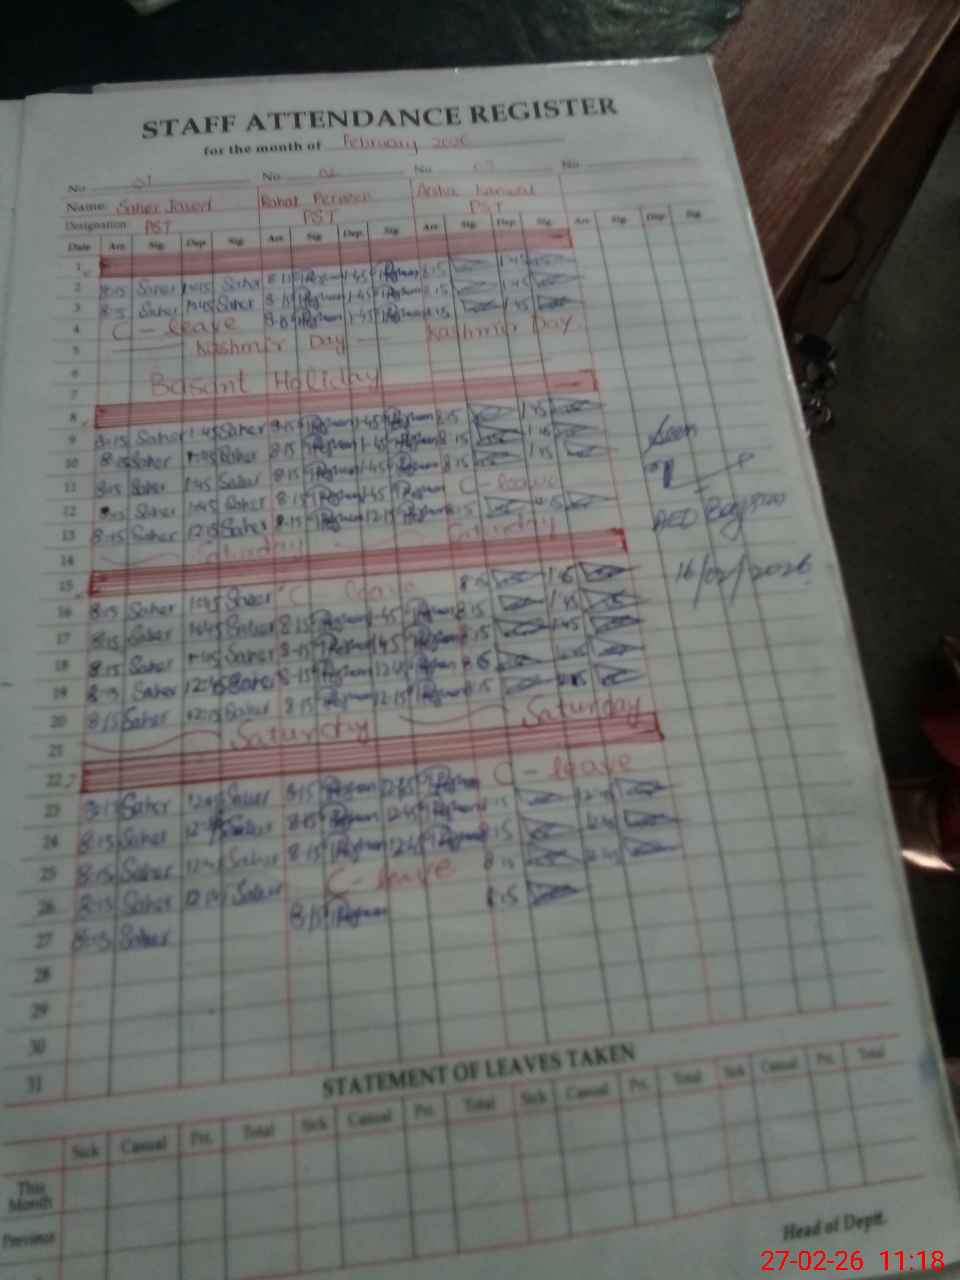 STAFF ATTENDANCE REGISTER
for the month of February 2026
No. 01 No. 02 No. 03 No.
Name: Saher Javed Rahat Perveen Aisha Kanwal
Designation PST PST PST
Date Arr. Sig. Dep. Sig. Arr. Sig. Dep. Sig. Arr. Sig. Dep. Sig. Arr. Sig. Dep. Sig.
1
2 8:15 Saher 1:45 Saher 8:15 1:45 8:15 1:45
3 8:15 Saher 1:45 Saher 8:15 1:45 8:15 1:45
4 C-leave 1:45 8:15 1:45
5 Kashmir Day Kashmir Day
6
7 Basant Holiday
8
9 8:15 Saher 1:45 Saher 8:15 1:45 8:15 1:45
10 8:15 Saher 1:45 Saher 8:15 1:45 8:15 1:45
11 8:15 Saher 1:45 Saher 8:15 1:45 8:15 1:45
12 8:15 Saher 1:45 Saher 8:15 1:45 C-leave
13 8:15 Saher 12:15 Saher 8:15 12:15 8:15
14 Saturday Saturday
15
16 8:15 Saher 1:45 Saher C-leave 8:15 1:45
17 8:15 Saher 1:45 Saher 8:15 1:45 8:15 1:45
18 8:15 Saher 1:45 Saher 8:15 1:45 8:15 1:45
19 8:15 Saher 12:45 Saher 8:15 12:45 8:15
20 8:15 Saher 12:15 Saher 8:15 12:15 8:15
21 Saturday Saturday
22
23 8:15 Saher 12:45 Saher 8:15 12:45 C-leave
24 8:15 Saher 12:45 Saher 8:15 12:45 8:15 12:45
25 8:15 Saher 12:45 Saher 8:15 12:45 8:15 12:45
26 8:15 Saher Saher C-leave 8:15 12:45
27 8:15 Saher 8:15 8:15
28
29
30
31
Seen
AEO
16/02/2026
STATEMENT OF LEAVES TAKEN
Sick Casual Pri. Total Sick Casual Pri. Total Sick Casual Pri. Total Sick Casual Pri. Total
This Month
Previous
Head of Deptt.
27-02-26 11:18